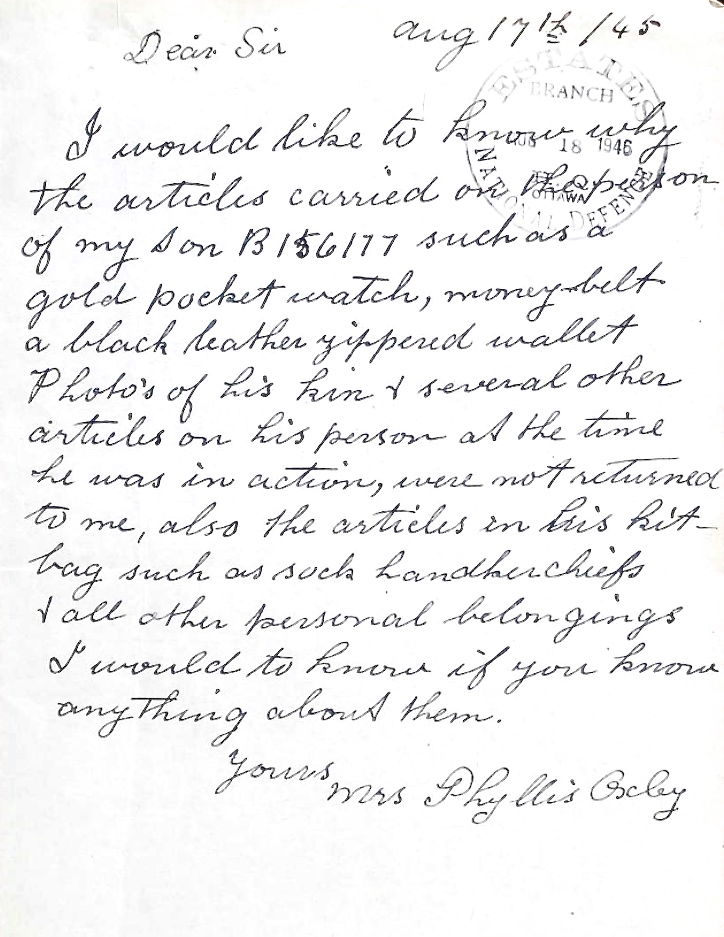 Aug 17th /45
Dear Sir
ESTATES
BRANCH
18 1946
OTTAWA
NATIONAL DEFENCE
I would like to know why
the articles carried on the person
of my Son B156177 such as a
gold pocket watch, money-belt
a black leather zippered wallet
Photo's of his kin & several other
articles on his person at the time
he was in action, were not returned
to me, also the articles in his kit-
bag such as sock handkerchiefs
& all other personal belongings
I would to know if you know
anything about them.
Yours
Mrs Phyllis Oxby